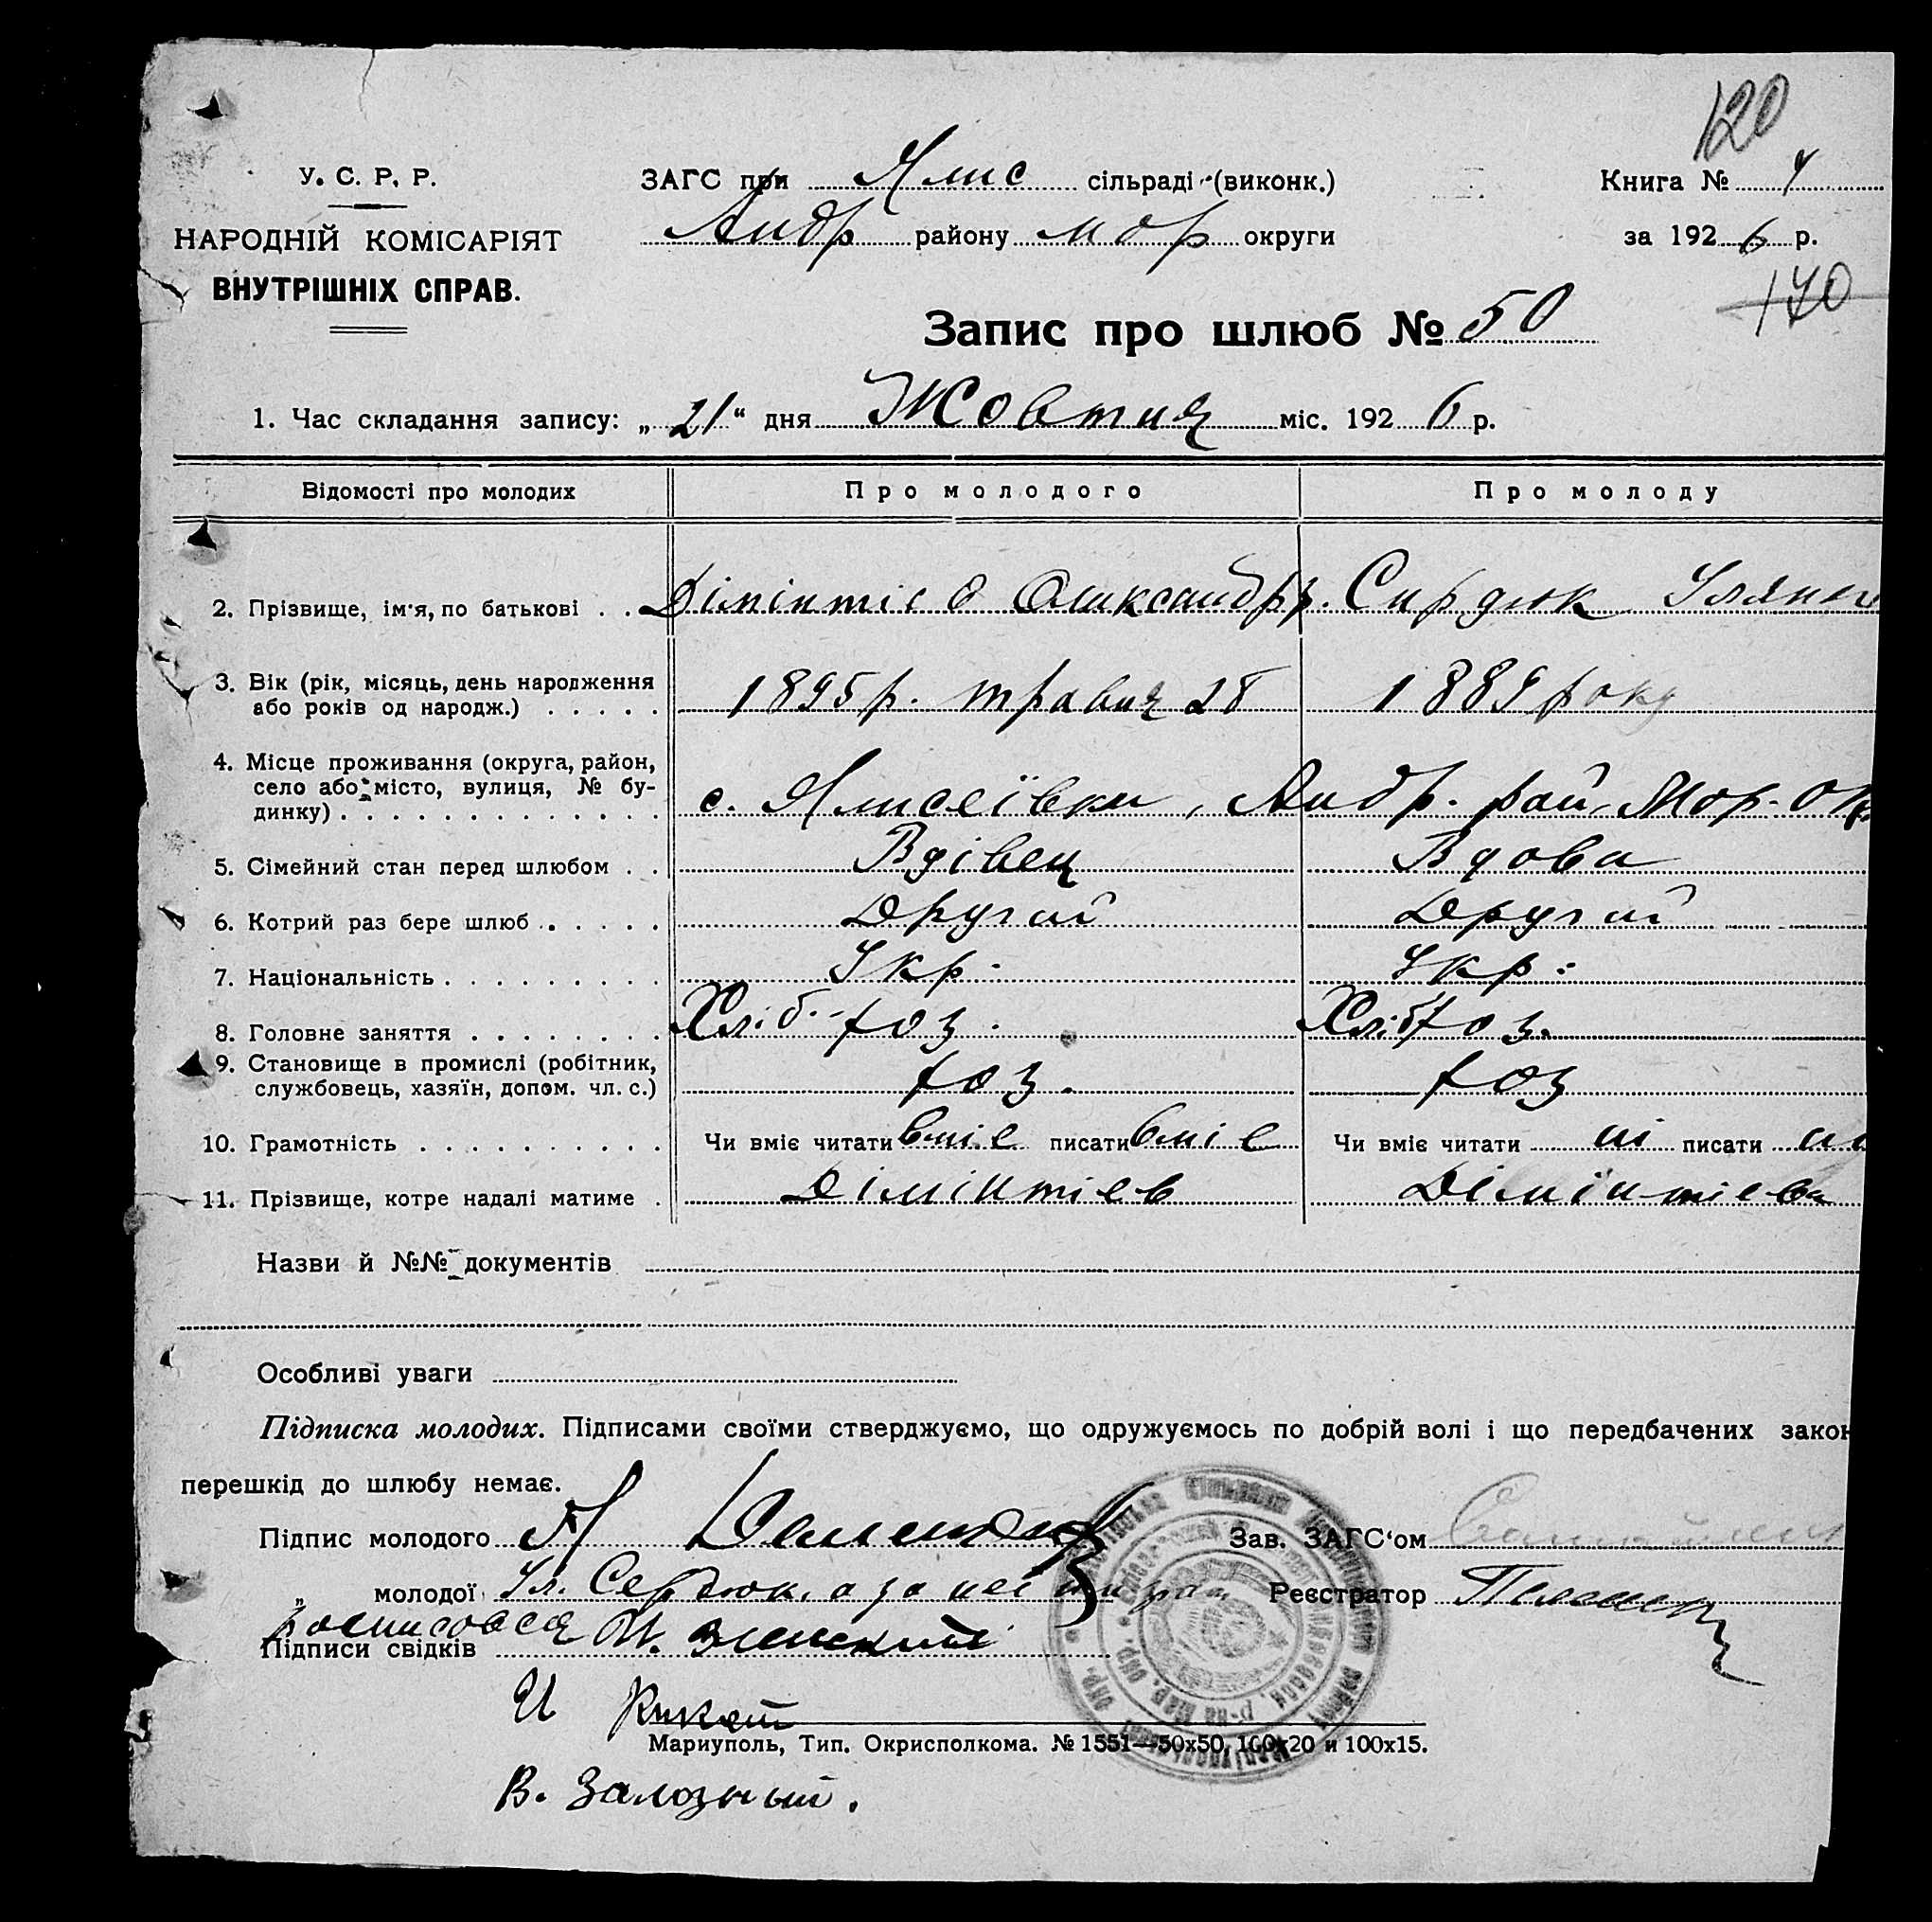 120
У. С. Р. Р.
ЗАГС при Ялис сільраді (виконк.)
Книга № 4
НАРОДНІЙ КОМІСАРІЯТ
Андр району мар округи
за 1926 р.
ВНУТРІШНІХ СПРАВ.
140
Запис про шлюб № 50
1. Час складання запису: „21“ дня Жовтня міс. 1926 р.
Відомості про молодих Про молодого Про молоду
2. Прізвище, ім'я, по батькові . . Дімінтієв Олександр Сирдюк Уляна
3. Вік (рік, місяць, день народження
або років од народж.) . . . . . 1895 р. травня 28 1889 року
4. Місце проживання (округа, район,
село або місто, вулиця, № бу-
динку) . . . . . . . . . . . . . с. Ялисеївки, Андр. рай, Мар. Ок.
5. Сімейний стан перед шлюбом . . Вдівец Вдова
6. Котрий раз бере шлюб . . . . . Другий Другий
7. Національність . . . . . . . . . Укр. Укр.
8. Головне заняття . . . . . . . . Хліб. роз. Хліб роз.
9. Становище в промислі (робітник,
службовець, хазяїн, допом. чл. с.) хоз. хоз
10. Грамотність . . . . . . . . . . Чи вміє читати вміє писати вміє Чи вміє читати ні писати ні
11. Прізвище, котре надалі матиме . Дімінтієв Дімінтієва
Назви й №№ документів
Особливі уваги
Підписка молодих. Підписами своїми стверджуємо, що одружуємось по добрій волі і що передбачених закон
перешкід до шлюбу немає.
Підпис молодого А
Зав. ЗАГС‘ом
„ молодої Ул. Сердюк, а за неї
Реєстратор
росписався
Підписи свідків
И
Мариуполь, Тип. Окрисполкома. № 1551—50х50, 100х20 и 100х15.
В. Залозный.